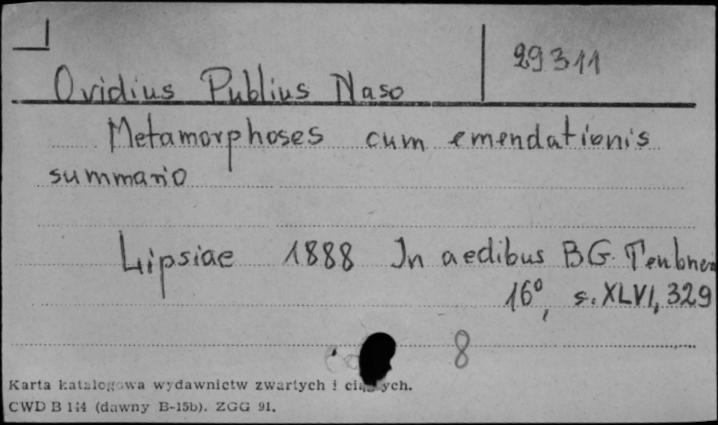 29311
Ovidius Publius Naso
Metamorphoses cum emendationis
summario
Lipsiae 1888 In aedibus B.G. Teubneri
16°, s. XLVI, 329
8
Karta katalogowa wydawnictw zwartych i ciągłych.
CWD B 144 (dawny B-15b). ZGG 91.